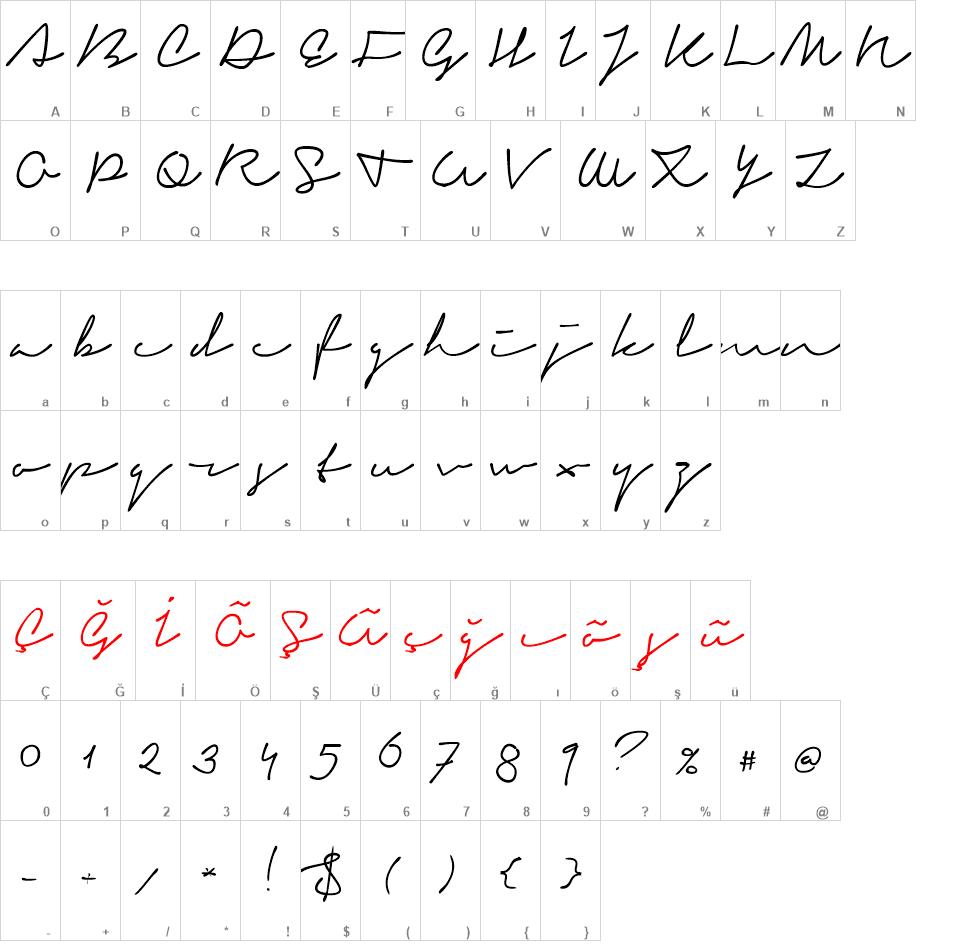 A B C D E F G H I J K L M N
A B C D E F G H I J K L M N
O P Q R S T U V W X Y Z
O P Q R S T U V W X Y Z
a b c d e f g h i j k l m n
a b c d e f g h i j k l m n
o p q r s t u v w x y z
o p q r s t u v w x y z
Ç Ğ İ Õ Ş Ũ ç ğ ı õ ş ũ
Ç Ğ İ Ö Ş Ü ç ğ ı ö ş ü
0 1 2 3 4 5 6 7 8 9 ? % # @
0 1 2 3 4 5 6 7 8 9 ? % # @
- + / * ! $ ( ) { }
- + / * ! $ ( ) { }